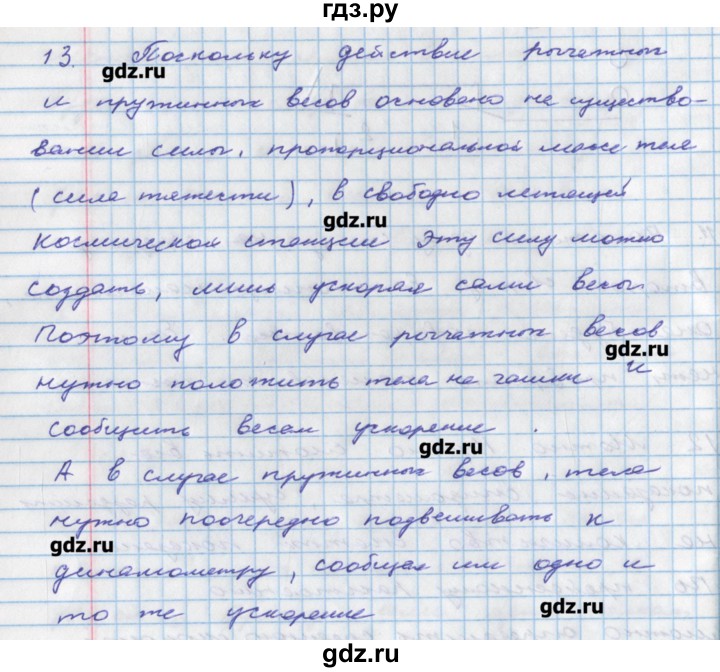 гдз.ру
13. Поскольку действие рычажных
gdz.ru
и пружинных весов основано на существо-
вании силы, пропорциональной массе тела
(сила тяжести), в свободно летящей
gdz.ru
космической станции эту силу можно
создать, лишь ускоряя сами весы.
Поэтому в случае рычажных весов
gdz.ru
нужно положить тела на чашки и
сообщить весам ускорение.
gdz.ru
А в случае пружинных весов, тела
нужно поочередно подвешивать к
gdz.ru
динамометру, сообщая им одно и
то же ускорение
gdz.ru